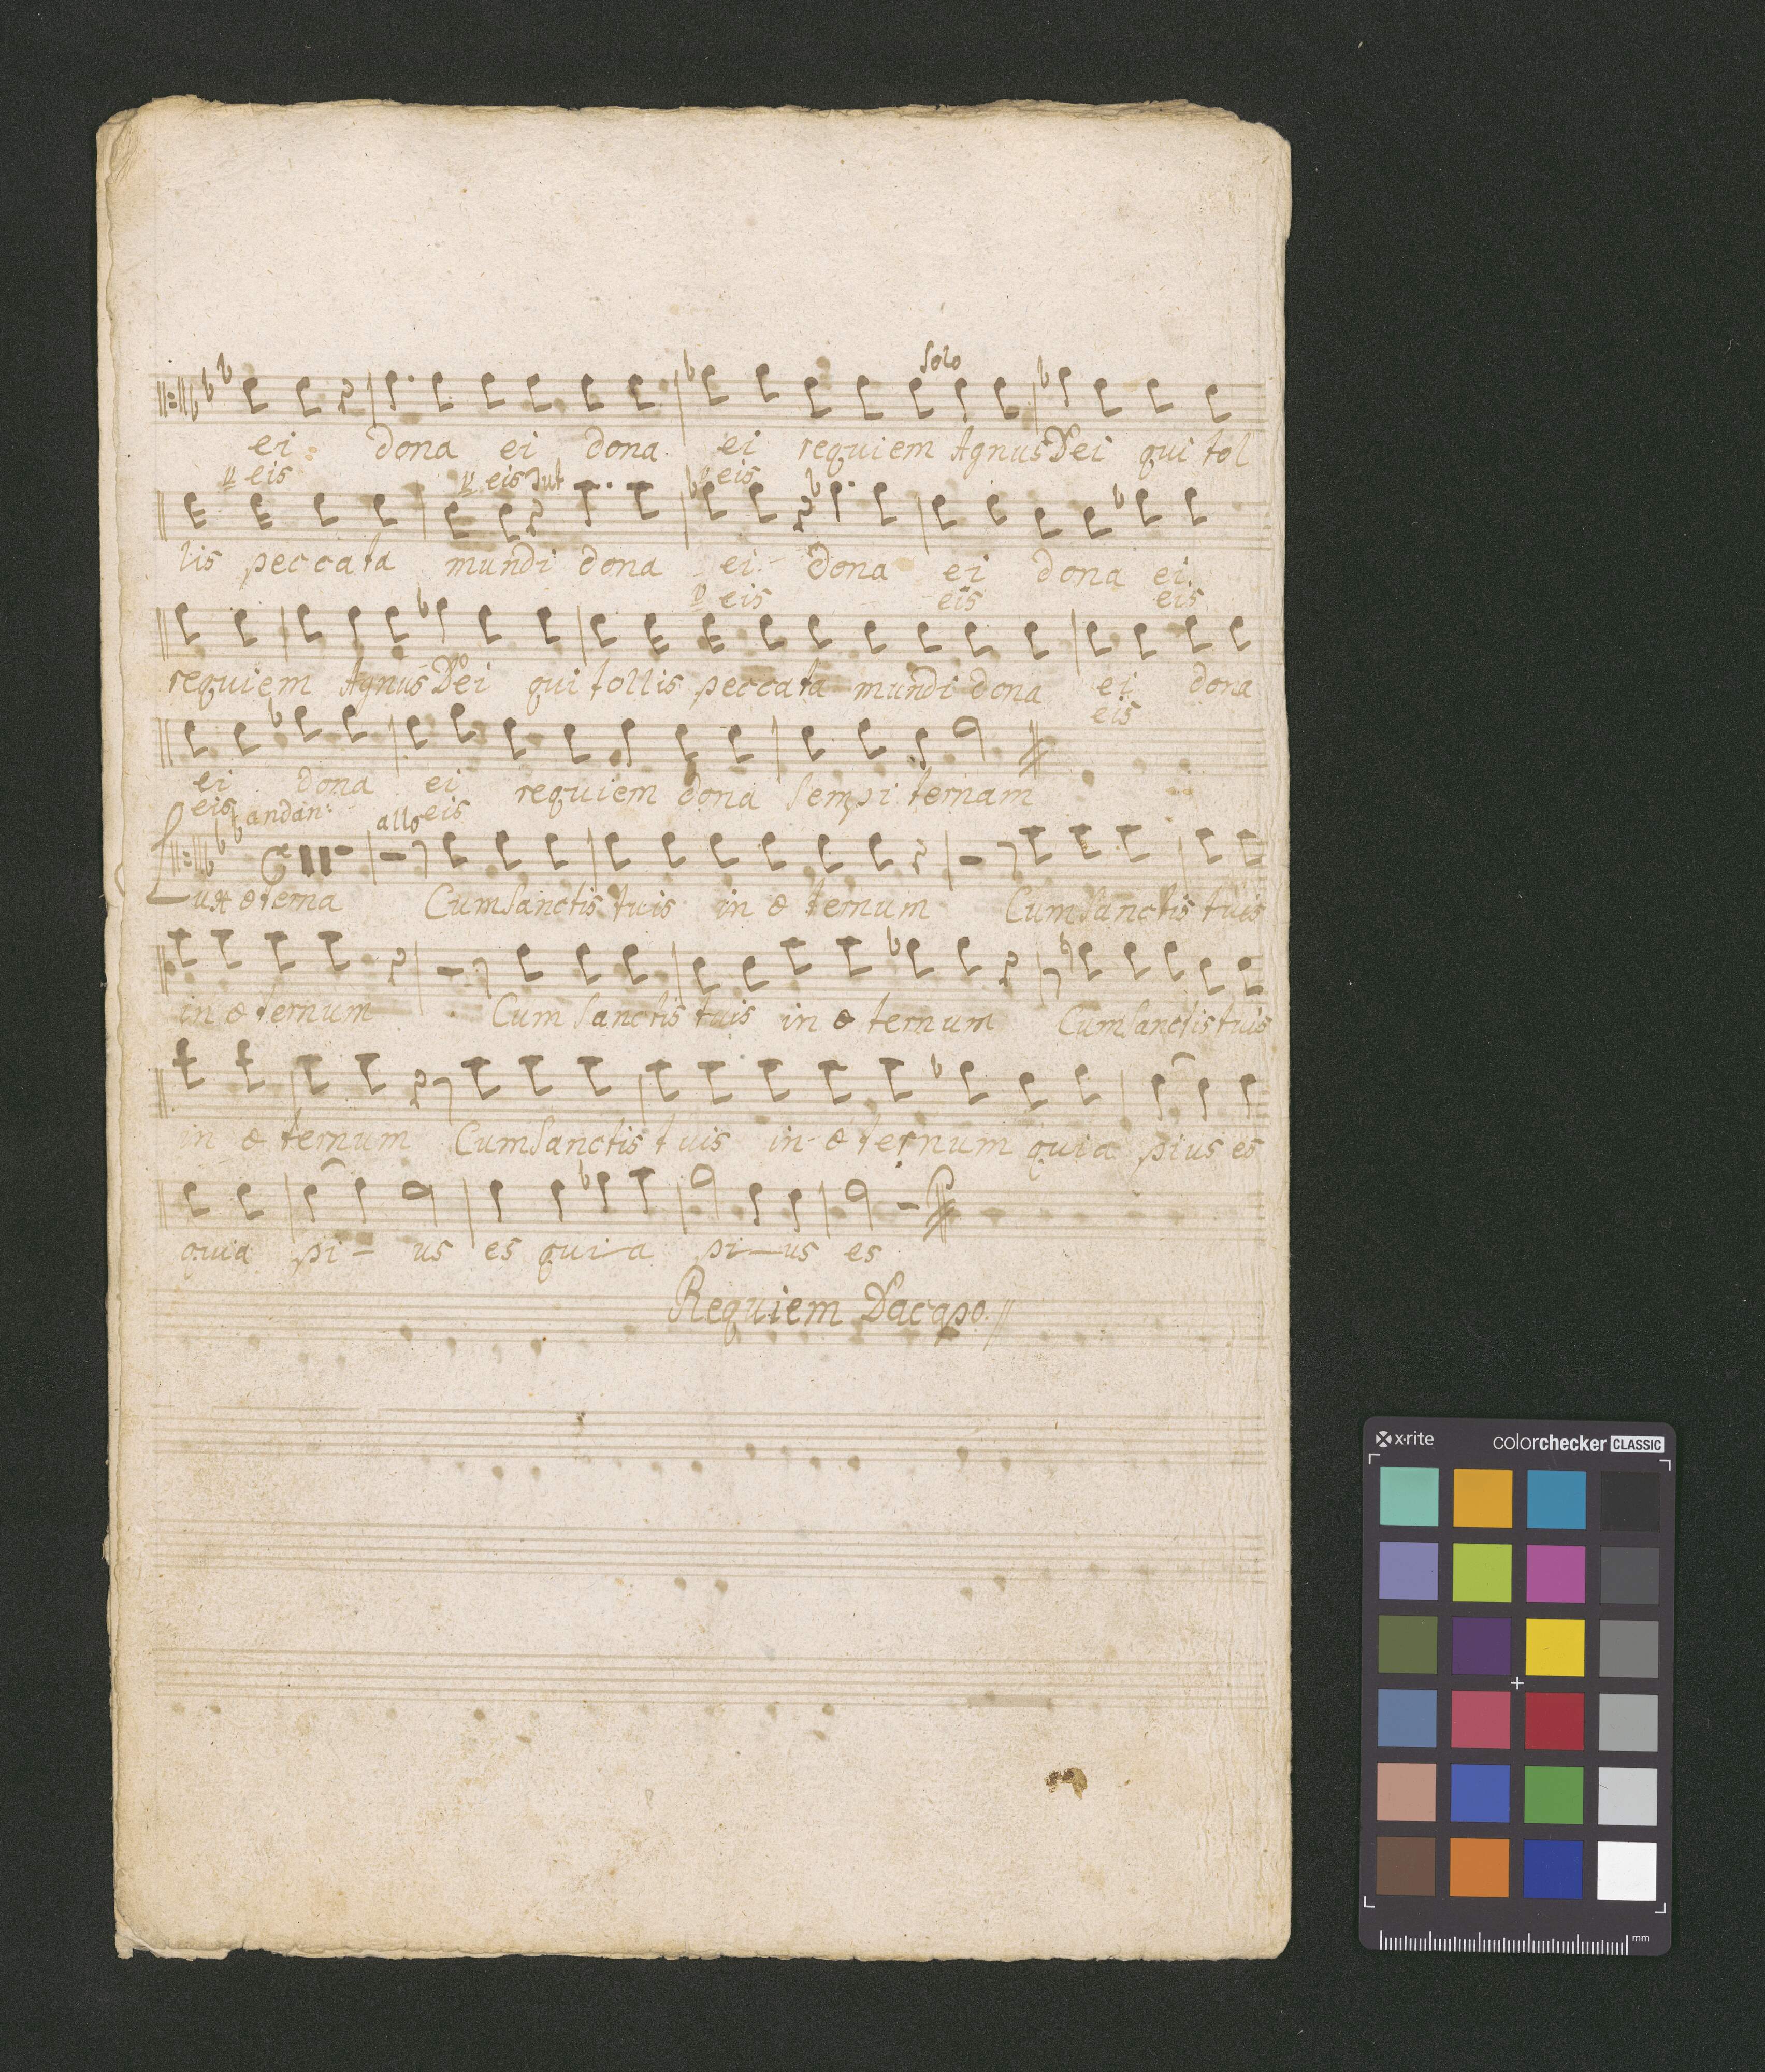 Solo
ei: dona ei dona ei requiem Agnus Dei qui tol
eis eis Tut eis
lis peccata mundi dona ei. dona ei dona ei.
eis eis eis
requiem Agnus Dei qui tollis peccata mundi dona ei dona
eis
ei dona ei requiem dona sempiternam
eis andan: allo eis
Lux æterna Cum Sanctis tuis in æternum Cum Sanctis tuis
in æternum Cum Sanctis tuis in æternum Cum Sanctis tuis
in æternum Cum Sanctis tuis in æternum quia pius es
quia pi- us es quia pi-us es
Requiem Da capo.
x-rite colorchecker CLASSIC
mm